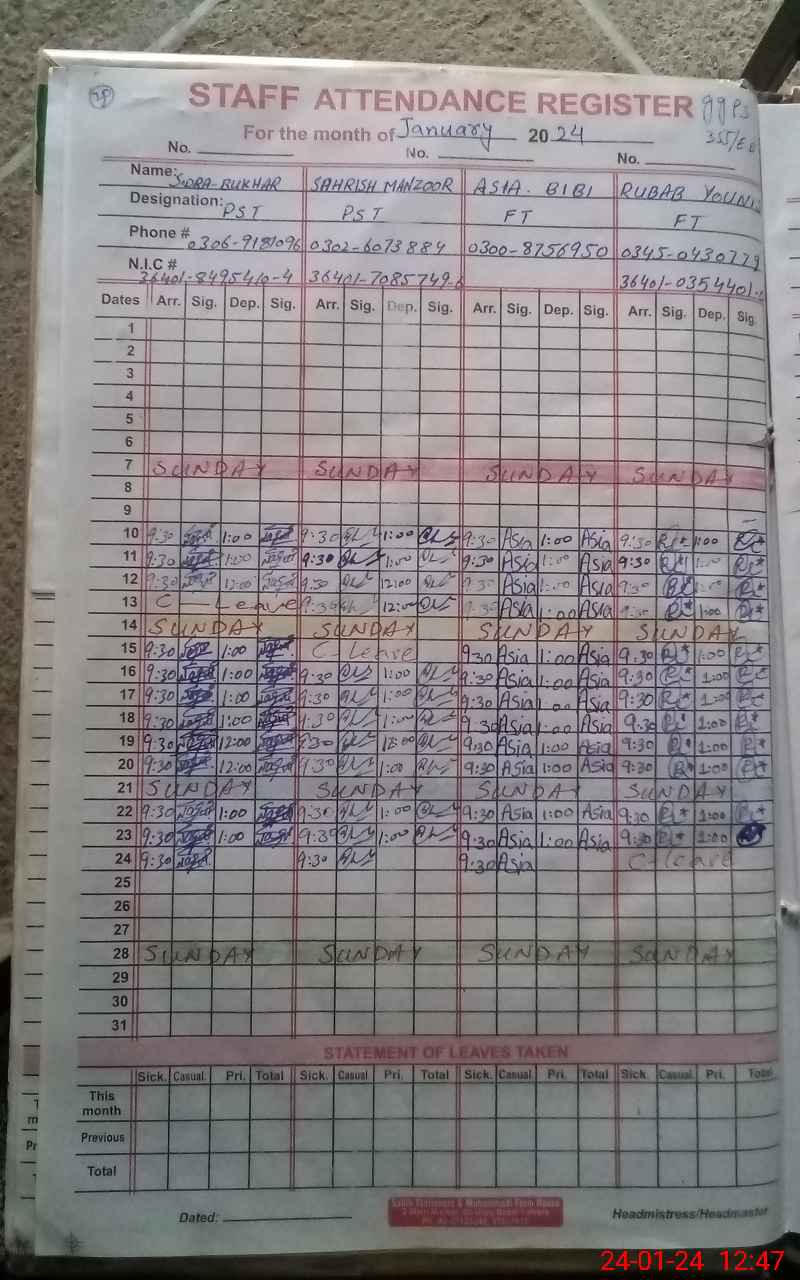 STAFF ATTENDANCE REGISTER ggPS
For the month of January 2024 355/EB
No. No. No.
Name: SIDRA-BUKHAR SAHRISH MANZOOR ASIA. BIBI RUBAB YOUNIS
Designation: PST PST FT FT
Phone # 0306-9181096 0302-6073884 0300-8756950 0345-0430779
N.I.C # 36401-8495410-4 36401-7085749-6 36401-0354401-
Dates Arr. Sig. Dep. Sig. Arr. Sig. Dep. Sig. Arr. Sig. Dep. Sig. Arr. Sig. Dep. Sig.
1
2
3
4
5
6
7 SUNDAY SUNDAY SUNDAY SUNDAY
8
9
10 9:30 1:00 9:30 1:00 9:30 Asia 1:00 Asia 9:30 1:00
11 9:30 1:00 9:30 1:00 9:30 Asia 1:00 Asia 9:30 1:00
12 9:30 12:00 9:30 12:00 9:30 Asia 1:00 Asia 9:30 1:00
13 C - Leave 9:30 12:00 9:30 Asia 1:00 Asia 9:30 1:00
14 SUNDAY SUNDAY SUNDAY SUNDAY
15 9:30 1:00 C-Leave 9:30 Asia 1:00 Asia 9:30 1:00
16 9:30 1:00 9:30 1:00 9:30 Asia 1:00 Asia 9:30 1:00
17 9:30 1:00 9:30 1:00 9:30 Asia 1:00 Asia 9:30 1:00
18 9:30 1:00 9:30 1:00 9:30 Asia 1:00 Asia 9:30 1:00
19 9:30 12:00 9:30 12:00 9:30 Asia 1:00 Asia 9:30 1:00
20 9:30 12:00 9:30 1:00 9:30 Asia 1:00 Asia 9:30 1:00
21 SUNDAY SUNDAY SUNDAY SUNDAY
22 9:30 1:00 9:30 1:00 9:30 Asia 1:00 Asia 9:30 1:00
23 9:30 1:00 9:30 1:00 9:30 Asia 1:00 Asia 9:30 1:00
24 9:30 9:30 9:30 Asia C-leave
25
26
27
28 SUNDAY SUNDAY SUNDAY SUNDAY
29
30
31
STATEMENT OF LEAVES TAKEN
Sick. Casual. Pri. Total Sick. Casual Pri. Total Sick. Casual. Pri. Total Sick. Casual. Pri. Total
This month
Previous
Total
Dated: Headmistress/Headmaster
24-01-24 12:47